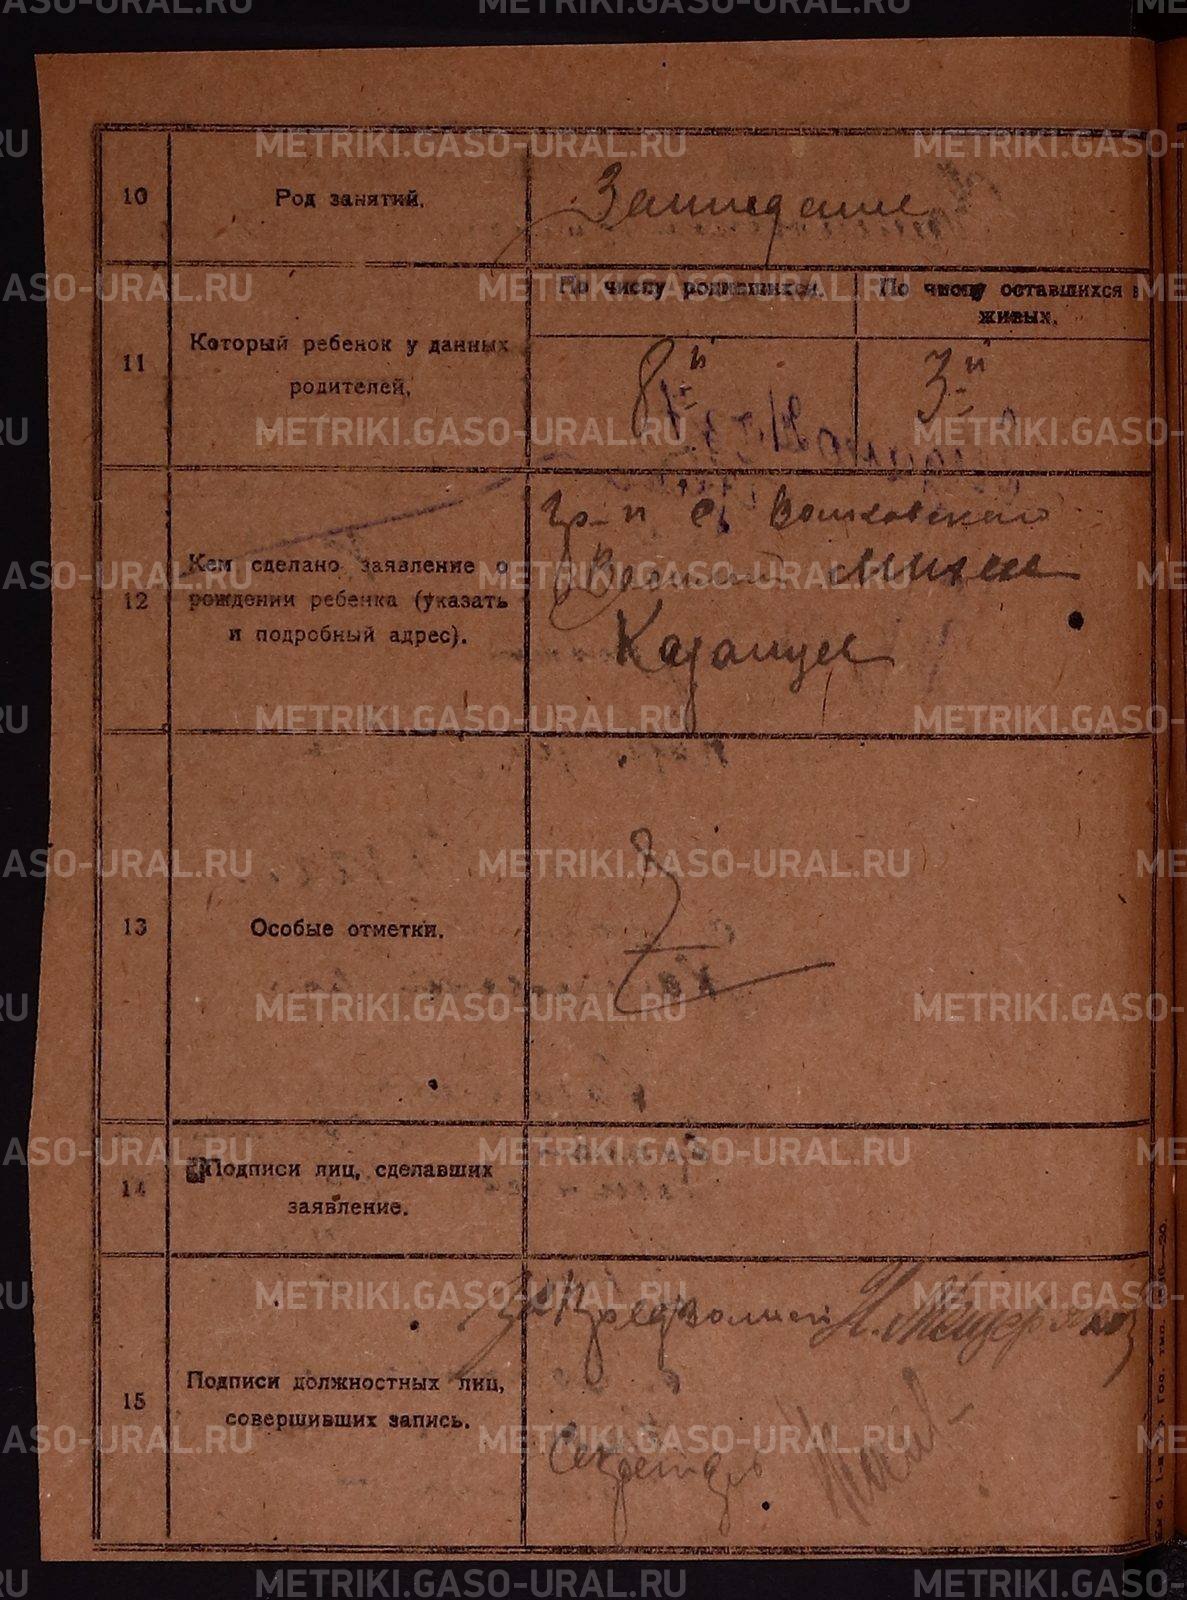 METRIKI.GASO-URAL.RU
10
Род занятий.
Землед елие
11
Который ребенок у данных
родителей,
По числу родившихся.
По числу оставшихся в
живых.
8-й
3-й
12
Кем сделано заявление о
рождении ребенка (указать
и подробный адрес).
Гр-н с. Волковского
Казанцев
13
Особые отметки.
14
Подписи лиц, сделавших
заявление.
15
Подписи должностных лиц,
совершивших запись.
Н. Мещеряков
Секретарь